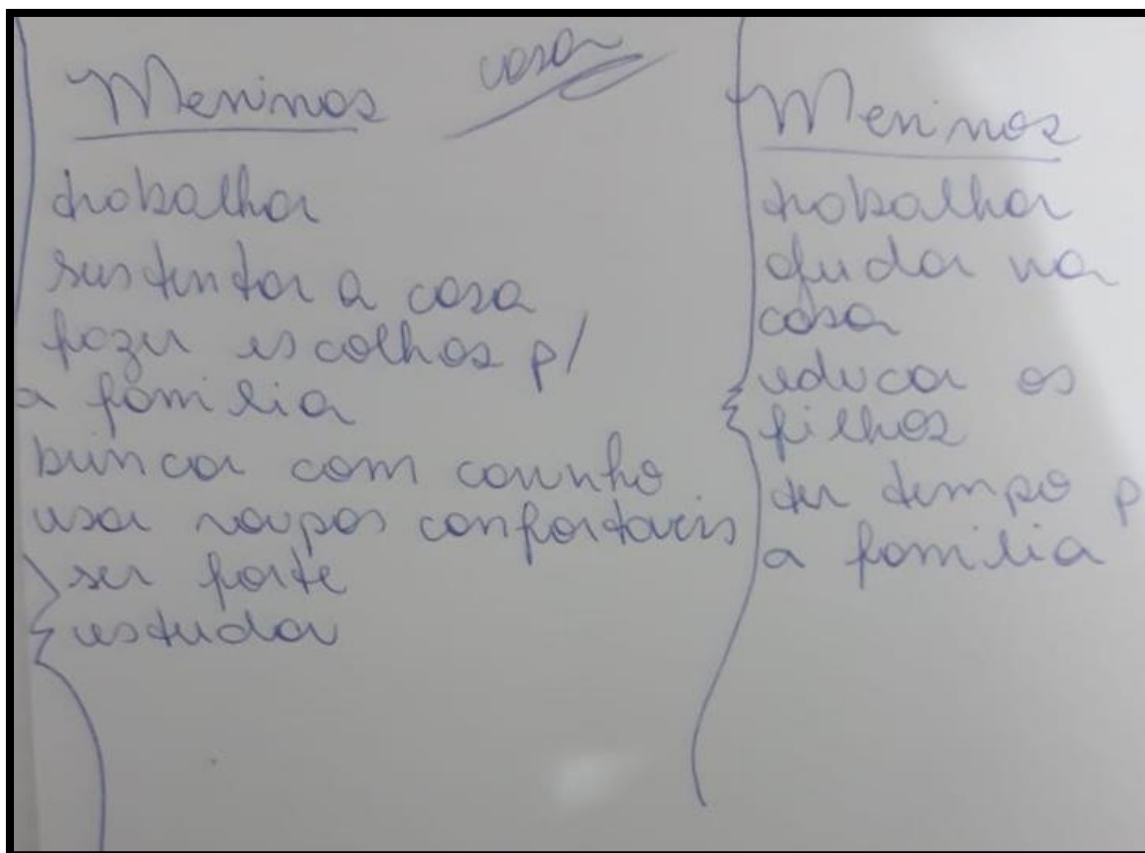 Meninos casa
trabalhar
sustentar a casa
fazer escolhas p/
a família
brincar com carrinho
usar roupas confortaveis
ser forte
estudar
Meninos
trabalhar
ajudar na
casa
educar os
filhos
ter tempo p
a família